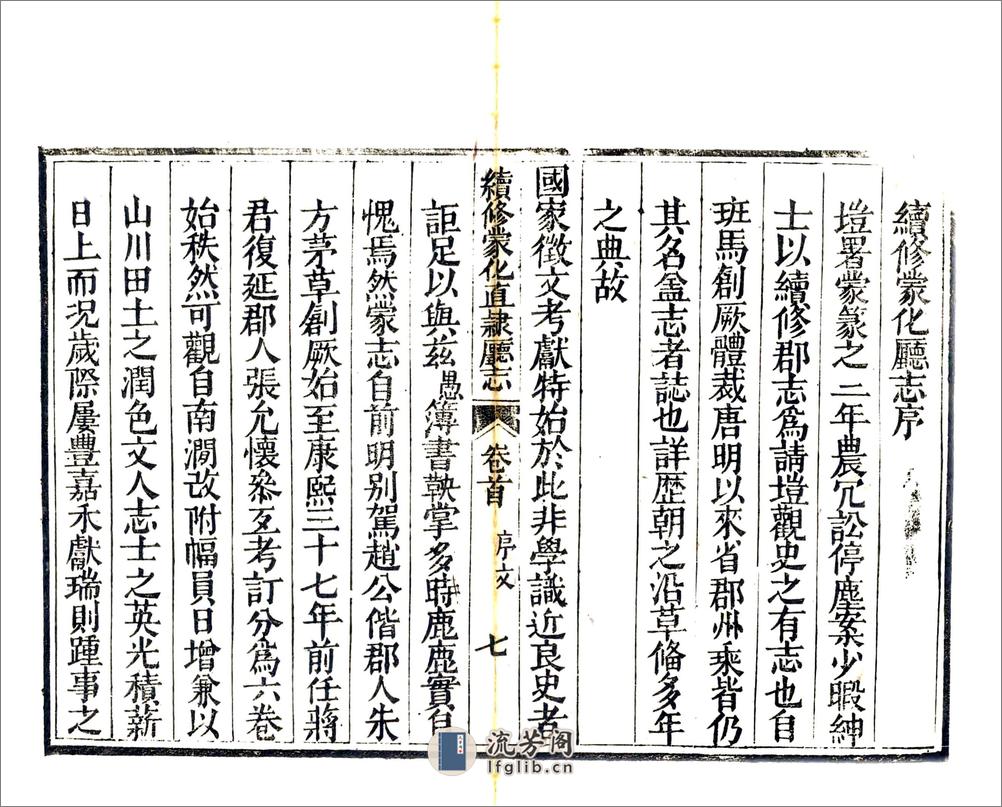 續修蒙化廳志序
塏署蒙篆之二年農冗訟停塵案少暇紳
士以續修郡志爲請塏觀史之有志也自
班馬創厥體裁唐明以來省郡州乘皆仍
其名盖志者誌也詳歴朝之沿革俻多年
之典故
國家徵文考獻特始於此非學識近良史者
續修蒙化直隷廳志
卷首
序文
七
詎足以與兹愚簿書鞅掌多時鹿鹿實自
愧焉然蒙志自前明别駕趙公偕郡人朱
方茅草創厥始至康熙三十七年前任蔣
君復延郡人張允懷叅互考訂分爲六卷
始秩然可觀自南澗改附幅員日增兼以
山川田土之潤色文人志士之英光積薪
日上而況歲際屢豐嘉禾獻瑞則踵事之
流芳阁
lfglib.cn